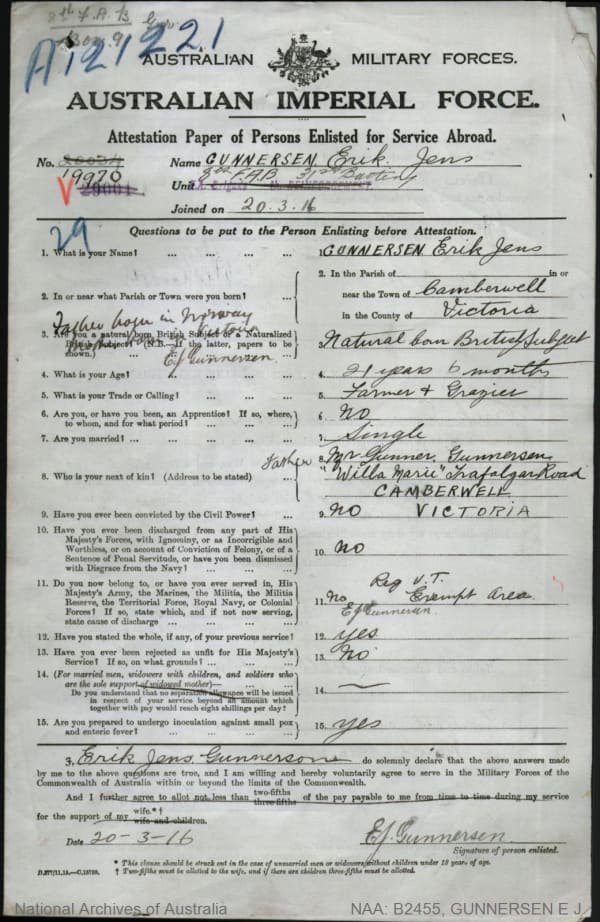 8th F.A.B. Gnr.
A121221
AUSTRALIAN MILITARY FORCES.
AUSTRALIAN IMPERIAL FORCE.
Attestation Paper of Persons Enlisted for Service Abroad.
No. 20034 Name GUNNERSEN, Erik Jens
19970 Unit 8th F.A.B. 31st Battery
V 29001 REINFORCEMENT
Joined on 20.3.16
29
Questions to be put to the Person Enlisting before Attestation.
1. What is your Name? ... ... ... 1. GUNNERSEN Erik Jens
2. In or near what Parish or Town were you born? ... 2. In the Parish of in or near the Town of Camberwell in the County of Victoria
Father born in Norway
Victoria
3. Are you a natural born British Subject or a Naturalized British Subject? (N.B.—If the latter, papers to be shown.) ... ... 3. Natural born British Subject
EJ Gunnersen.
4. What is your Age? ... ... ... 4. 21 years 6 months
5. What is your Trade or Calling? ... ... 5. Farmer & Grazier
6. Are you, or have you been, an Apprentice? If so, where, to whom, and for what period? ... ... 6. No
7. Are you married? ... ... ... 7. Single
8. Who is your next of kin? (Address to be stated) ... Father 8. Mr Gunner Gunnersen
"Willa Marie" Trafalgar Road
CAMBERWELL
VICTORIA
9. Have you ever been convicted by the Civil Power? ... 9. No
10. Have you ever been discharged from any part of His Majesty's Forces, with Ignominy, or as Incorrigible and Worthless, or on account of Conviction of Felony, or of a Sentence of Penal Servitude, or have you been dismissed with Disgrace from the Navy? ... ... 10. No
11. Do you now belong to, or have you ever served in, His Majesty's Army, the Marines, the Militia, the Militia Reserve, the Territorial Force, Royal Navy, or Colonial Forces? If so, state which, and if not now serving, state cause of discharge ... ... ... 11. No Reg U.T. Exempt Area.
EJ Gunnersen.
12. Have you stated the whole, if any, of your previous service? 12. yes
13. Have you ever been rejected as unfit for His Majesty's Service? If so, on what grounds? ... ... 13. No
14. (For married men, widowers with children, and soldiers who are the sole support of widowed mother)— ... ... 14. —
Do you understand that no separation allowance will be issued in respect of your service beyond an amount which together with pay would reach eight shillings per day?
15. Are you prepared to undergo inoculation against small pox and enteric fever? ... ... ... 15. yes
I, Erik Jens Gunnersen do solemnly declare that the above answers made
by me to the above questions are true, and I am willing and hereby voluntarily agree to serve in the Military Forces of the
Commonwealth of Australia within or beyond the limits of the Commonwealth.
And I further agree to allot not less than two-fifths three-fifths of the pay payable to me from time to time during my service
for the support of my wife.*† wife and children.
Date 20-3-16
EJ Gunnersen.
Signature of person enlisted.
* This clause should be struck out in the case of unmarried men or widowers without children under 18 years of age.
† Two-fifths must be allotted to the wife, and if there are children three-fifths must be allotted.
National Archives of Australia
NAA: B2455, GUNNERSEN E J